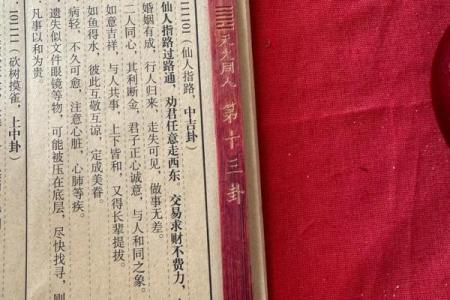 天火同人 第十三卦
11101（仙人指路，中吉卦）
仙人指路过路通，劝君任意走西东 交易求财不费力，
婚姻有成，行人归来 走失可见，做事无差。
二人同心，其利断金。君子正心诚意，与人和同之象。
如意吉祥，与人共事，上下皆和，又得长辈提拔。
如鱼得水，彼此互敬互谅，定成美眷。
病轻，不久可愈，注意心脏、心肺等疾。
遗失似文件眼镜等物，可能被压在底层，尽快找寻，则
凡事以和为贵
101111（砍树摸雀，上中卦）